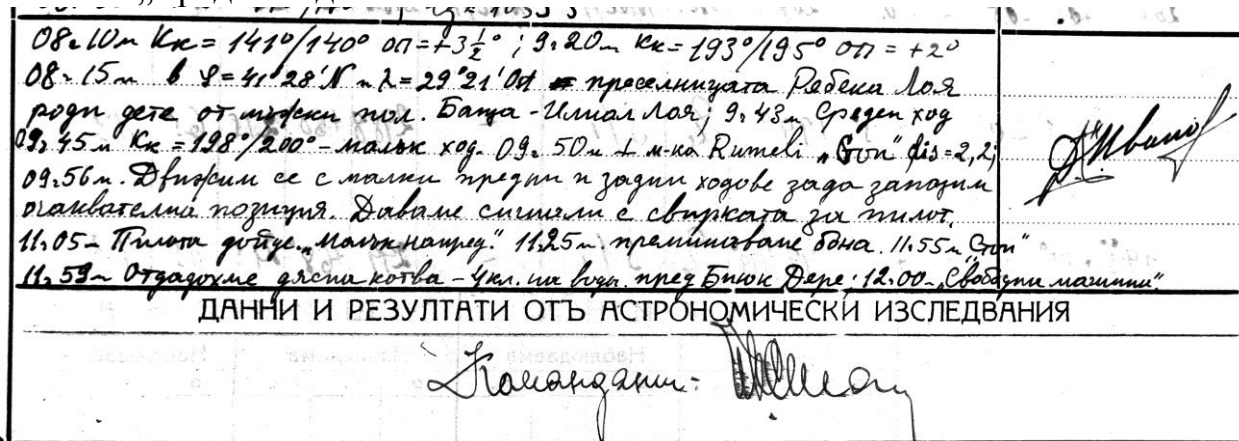 08ч10м Кк = 141°/140° оп = +3½° ; 9ч20м Кк = 193°/195° оп = +2°
08ч15м в φ = 41°28'N и λ = 29°21'Ost преселницата Ребека Лоя
роди дете от мъжки пол. Баща - Илиал Лоя; 9ч43м Среден ход
09ч45м Кк = 198°/200° - малък ход. 09ч50м ⊥ м-ка Rumeli „Стоп" dis = 2,2;
09ч56м. Движим се с малки предни и задни ходове за да запазим
очаквателна позиция. Даваме сигнали с свирката за пилот.
11ч05м Пилота дойде. „Малък напред." 11ч25м преминаваме бона. 11ч55м „Стоп"
11ч59м Отдадохме дясна котва - 4кл. на вода пред Бююк Дере; 12ч00м „Свободни машини"
Д. Иванов
ДАННИ И РЕЗУЛТАТИ ОТЪ АСТРОНОМИЧЕСКИ ИЗСЛЕДВАНИЯ
Командант: